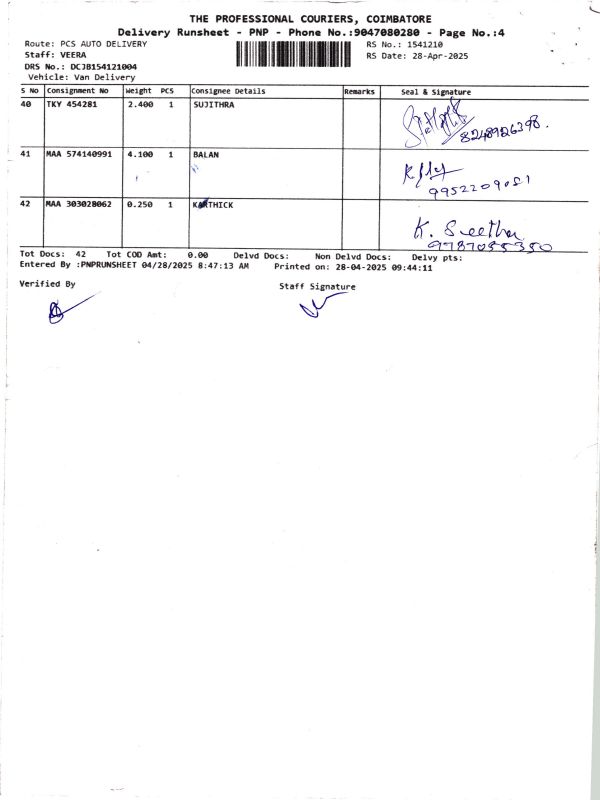 THE PROFESSIONAL COURIERS, COIMBATORE
Delivery Runsheet - PNP - Phone No.:9047080280 - Page No.:4
Route: PCS AUTO DELIVERY RS No.: 1541210
Staff: VEERA RS Date: 28-Apr-2025
DRS No.: DCJB154121004
Vehicle: Van Delivery
S No Consignment No Weight PCS Consignee Details Remarks Seal & Signature
40 TKY 454281 2.400 1 SUJITHRA
8248926398.
41 MAA 574140991 4.100 1 BALAN
9952209051
42 MAA 303028062 0.250 1 KARTHICK
K. Seetha
9787055350
Tot Docs: 42 Tot COD Amt: 0.00 Delvd Docs: Non Delvd Docs: Delvy pts:
Entered By :PNPRUNSHEET 04/28/2025 8:47:13 AM Printed on: 28-04-2025 09:44:11
Verified By Staff Signature